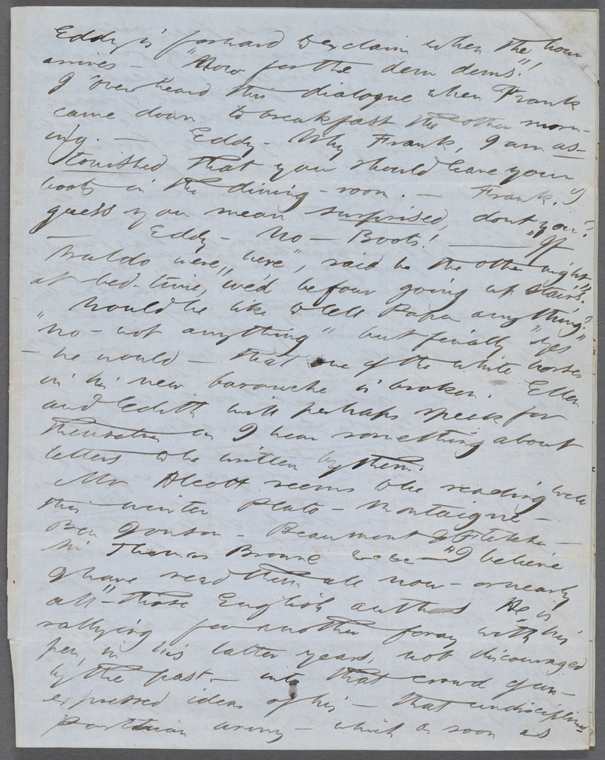 Eddy is forward to exclaim when the hour
arrives – "Now for the dem dems!"
I overheard this dialogue when Frank
came down to breakfast the other morn-
ing. — Eddy – Why Frank, I am as-
tonished that you should leave your
boots in the dining-room. — Frank. I
guess you mean surprised, dont you?
— Eddy – No – Boots! —— "If
Waldo were here", said he the other night
at bed-time, "we'd be four going up stairs".
Would he like to tell Papa anything?
"No – not anything" but finally "yes"
– he would – that one of the white horses
in his new barouche is broken. Ellen
and Edith will perhaps speak for
themselves as I hear something about
letters to be written by them.
Mr Alcott seems to be reading well
this winter Plato – Montaigne –
Ben Jonson – Beaumont & Fletcher –
Sir Thomas Browne &c &c – "I believe
I have read them all now – or nearly
all" – those English authors. He is
rallying for another foray with his
pen, in his latter years, not discouraged
by the past – into that crowd of un-
expressed ideas of his – that undisciplined
Parthian army – which as soon as